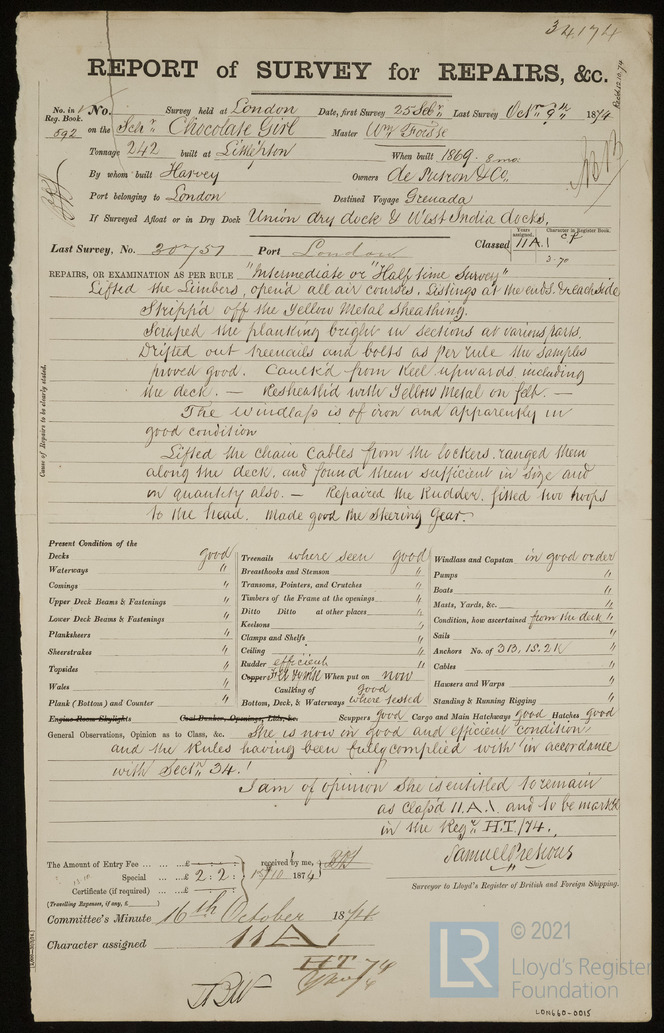 34174
REPORT of SURVEY for REPAIRS, &c.
Recd 12.10.74
No. in Reg. Book. 592
No. Survey held at London Date, first Survey 25 Septr Last Survey Octr 9th 1874
on the Schr Chocolate Girl Master Wm Forsse
Tonnage 242 built at Littlepton When built 1869. 8 mo:
By whom built Harvey Owners de Putron & Co
Port belonging to London Destined Voyage Grenada
If Surveyed Afloat or in Dry Dock Union dry dock & West India docks,
Years assigned. Character in Register Book.
Last Survey, No. 20757 Port London Classed 11A.1 CF
3.70
REPAIRS, OR EXAMINATION AS PER RULE "Intermediate or "Half time Survey"
Lifted the Limbers, open'd all air courses, Listings at the ends & each side
Stripp'd off the Yellow Metal Sheathing.
Scraped the planking bright in sections at various parts.
Drifted out treenails and bolts as per rule the samples
proved good. Caulk'd from Keel upwards including
the deck. — Resheath'd with Yellow Metal on felt. —
The windlass is of iron and apparently in
good condition
Lifted the chain cables from the lockers. ranged them
along the deck, and found them sufficient in size and
in quantity also. — Repaired the Rudder. fitted two hoops
to the head. Made good the Steering Gear.
Cause of Repairs to be clearly stated.
Present Condition of the
Decks good Treenails where seen good Windlass and Capstan in good order
Waterways " Breasthooks and Stemson " Pumps "
Comings " Transoms, Pointers, and Crutches " Boats "
Upper Deck Beams & Fastenings " Timbers of the Frame at the openings " Masts, Yards, &c. "
Lower Deck Beams & Fastenings " Ditto Ditto at other places " Condition, how ascertained from the deck "
Planksheers " Keelsons " Sails "
Sheerstrakes " Clamps and Shelfs " Anchors No. of 3B, 1S. 2K "
Topsides " Ceiling " Cables "
Wales " Rudder efficient Hawsers and Warps "
Plank (Bottom) and Counter " Copper When put on now Standing & Running Rigging "
Caulking of good
Bottom, Deck, & Waterways where tested
Engine Room Skylights Coal Bunker, Openings, Lids, &c. Scuppers good Cargo and Main Hatchways good Hatches good
General Observations, Opinion as to Class, &c. She is now in good and efficient condition
and the Rules having been fully complied with in accordance
with Sectn 34.
I am of opinion she is entitled to remain
as class'd 11.A.1. and to be mark'd
in the Regr H.T/74.
The Amount of Entry Fee ... £ received by me,
Special ... £ 2:2: 15/10 1874
Certificate (if required) ... £
(Travelling Expenses, if any, £ )
Surveyor to Lloyd's Register of British and Foreign Shipping.
Committee's Minute 16th October 1874
Character assigned 11A1
HT 74
© 2021
LR
Lloyd's Register
Foundation
LON660-0015